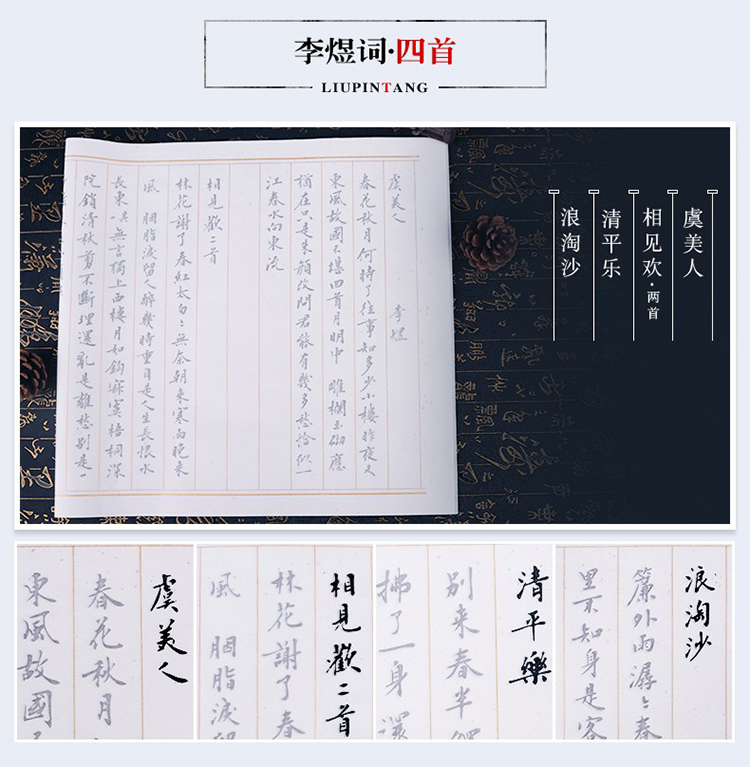 李煜词·四首
LIUPINTANG
虞美人 李煜
春花秋月何時了往事知多少小樓昨夜又
東風故國不堪回首月明中 雕欄玉砌應
猶在只是朱顏改問君能有幾多愁恰似一
江春水向東流
相見歡二首
林花謝了春紅太匆〻無奈朝來寒雨晚來
風 胭脂淚留人醉幾時重自是人生長恨水
長東 無言獨上西樓月如鈎寂寞梧桐深
院鎖清秋剪不斷理還亂是離愁別是一
虞美人
相见欢·两首
清平乐
浪淘沙
虞美人
春花秋月
東風故國
相見歡二首
林花謝了春
風 胭脂淚留
清平樂
別來春半
拂了一身還
浪淘沙
簾外雨潺〻春
里不知身是客